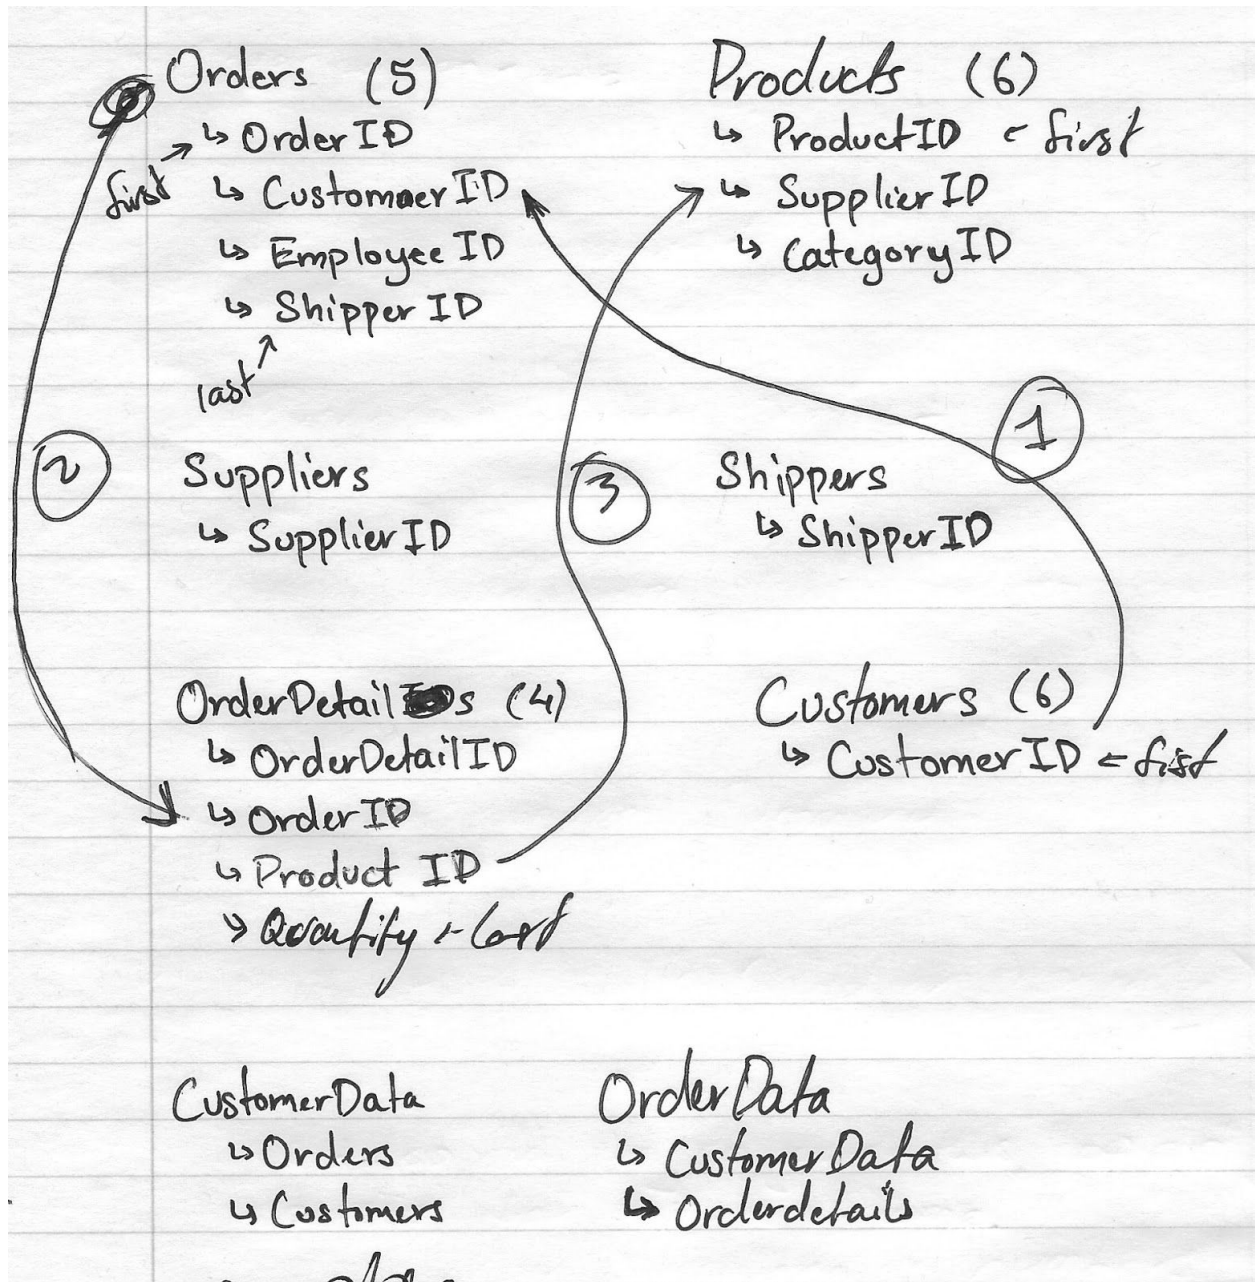 Orders (5)
↳ OrderID
first
↳ CustomerID
↳ EmployeeID
↳ ShipperID
last
Products (6)
↳ ProductID ← first
↳ SupplierID
↳ CategoryID
1
2
Suppliers
↳ SupplierID
3
Shippers
↳ ShipperID
OrderDetails (4)
↳ OrderDetailID
↳ OrderID
↳ Product ID
↳ Quantity ← last
Customers (6)
↳ CustomerID ← fist
CustomerData
↳ Orders
↳ Customers
OrderData
↳ CustomerData
↳ Orderdetails